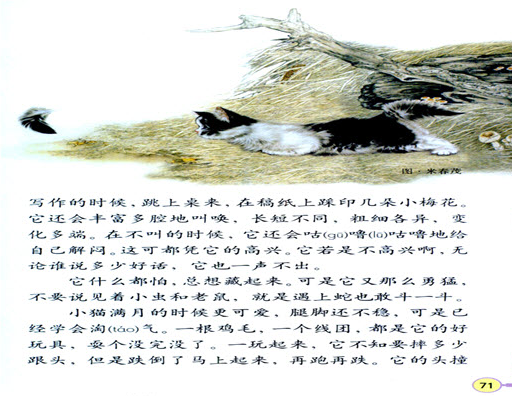 图·米春茂
写作的时候，跳上桌来，在稿纸上踩印几朵小梅花。
它还会丰富多腔地叫唤，长短不同，粗细各异，变
化多端。在不叫的时候，它还会咕(gū)噜(lū)咕噜地给
自己解闷。这可都凭它的高兴。它若是不高兴啊，无
论谁说多少好话，它也一声不出。
它什么都怕，总想藏起来。可是它又那么勇猛，
不要说见着小虫和老鼠，就是遇上蛇也敢斗一斗。
小猫满月的时候更可爱，腿脚还不稳，可是已
经学会淘(táo)气。一根鸡毛，一个线团，都是它的好
玩具，耍个没完没了。一玩起来，它不知要摔多少
跟头，但是跌倒了马上起来，再跑再跌。它的头撞
71